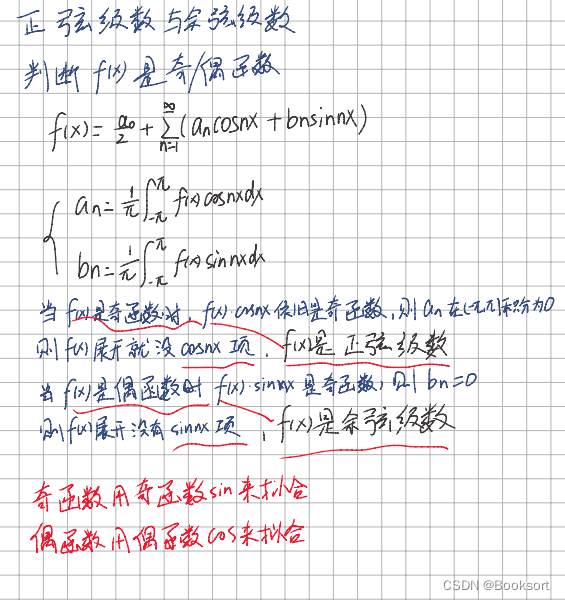 正弦级数与余弦级数
判断 f(x) 是奇/偶函数
f(x) = a₀/2 + ∑_{n=1}^{∞} (aₙcosnx + bₙsinnx)
{ aₙ = 1/π ∫_{-π}^{π} f(x)cosnxdx
bₙ = 1/π ∫_{-π}^{π} f(x)sinnxdx
当 f(x)是奇函数时, f(x)·cosnx 依旧是奇函数, 则 aₙ 在(-π,π)积分为0
则 f(x)展开就没 cosnx 项, f(x)是正弦级数
当 f(x)是偶函数时 f(x)·sinnx 是奇函数, 则 bn=0
则 f(x)展开没有 sinnx 项, f(x)是余弦级数
奇函数用奇函数sin来拟合
偶函数用偶函数cos来拟合
CSDN @Booksort